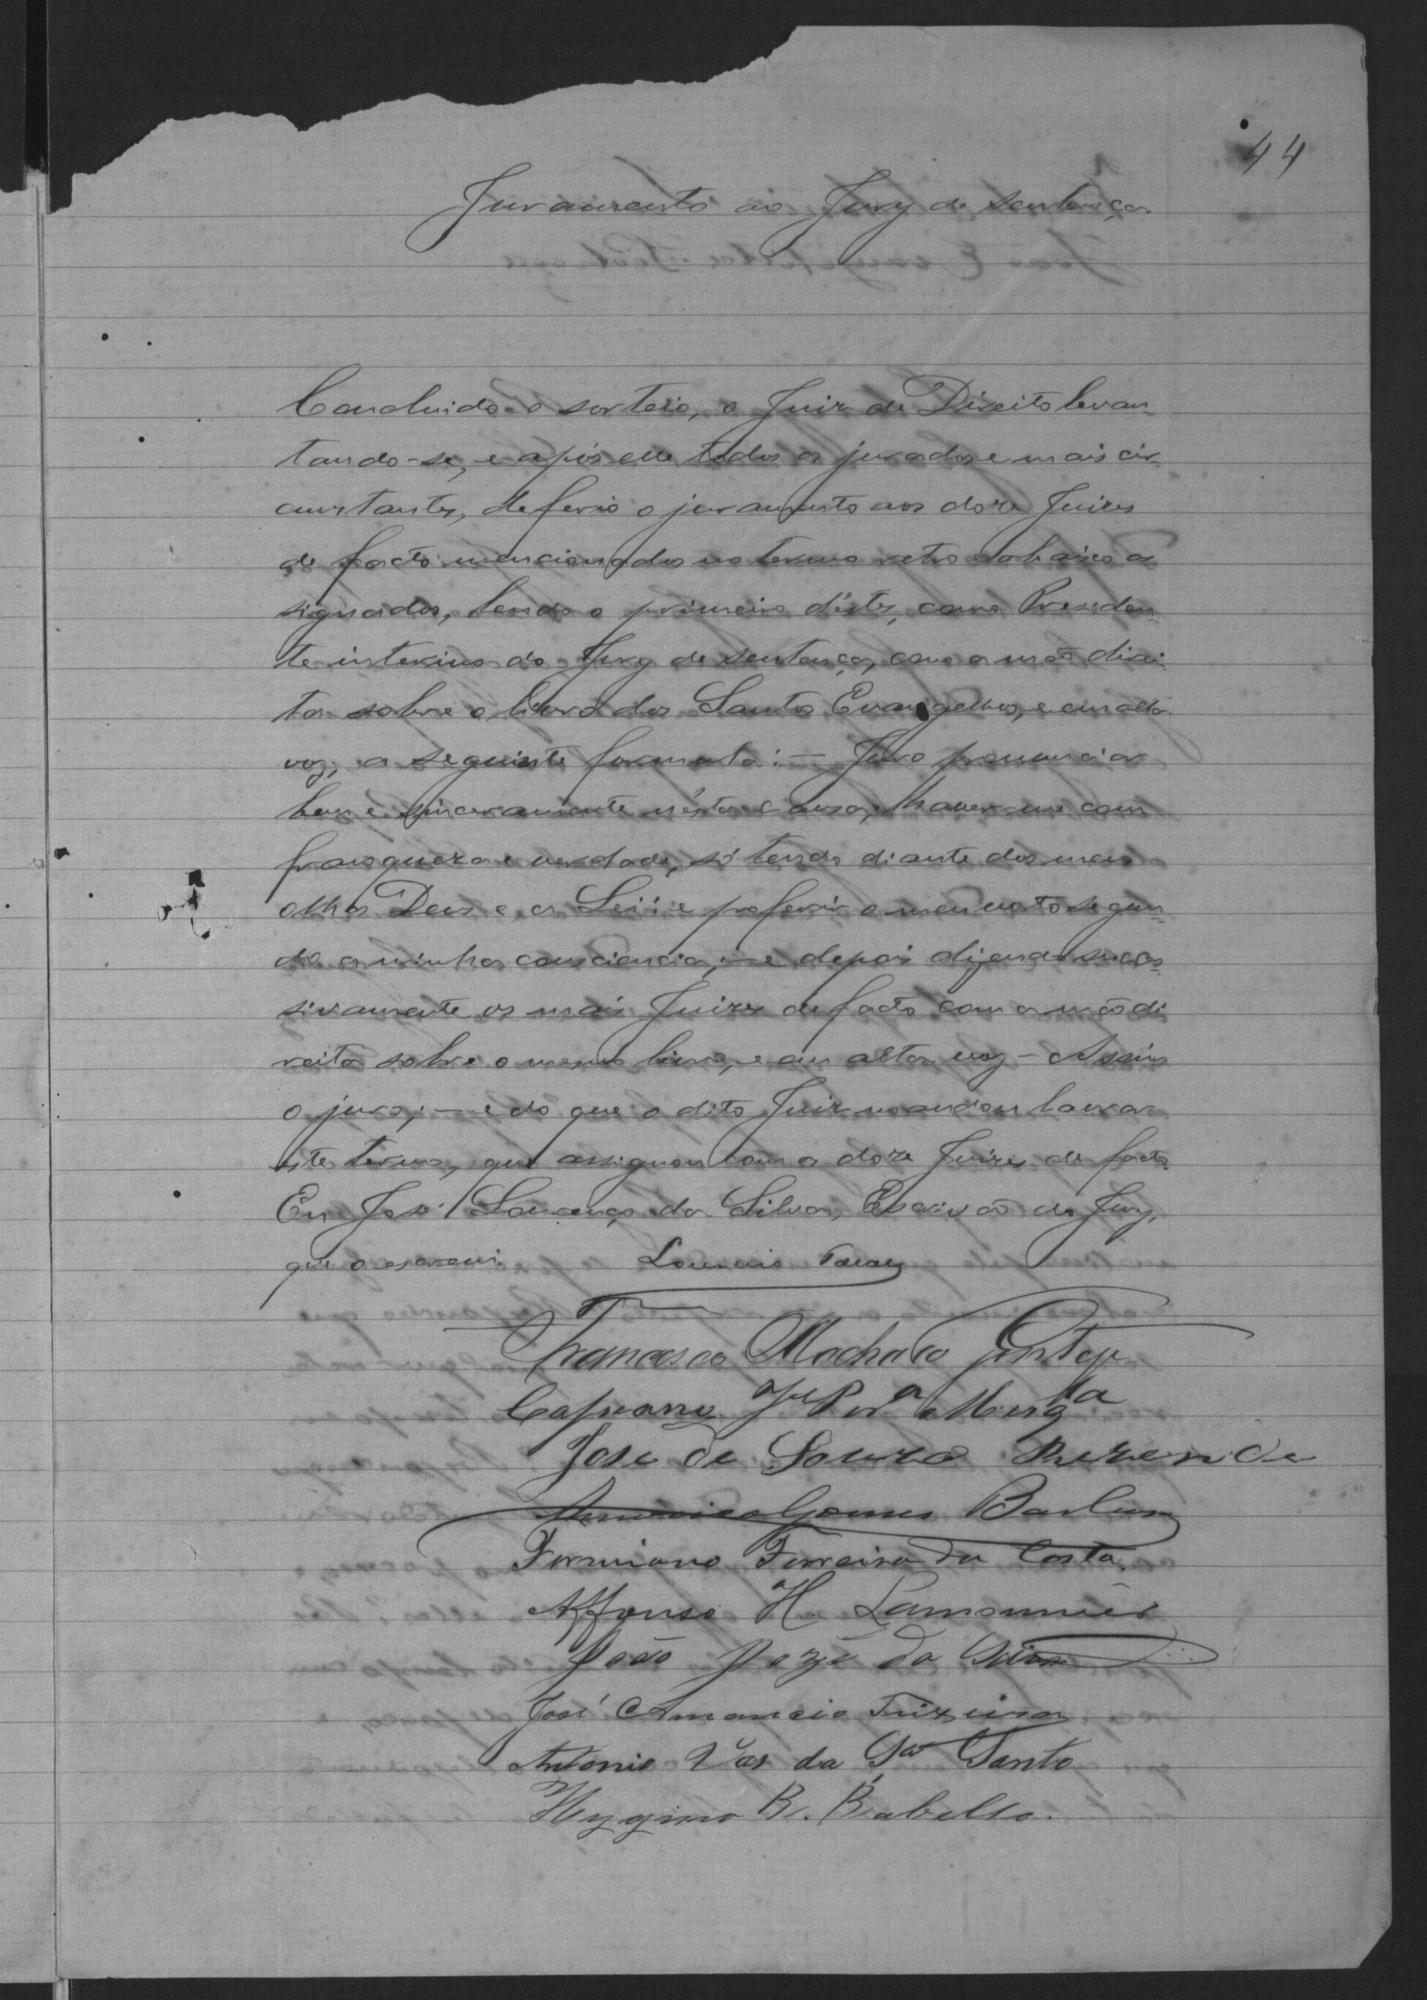 44
Juramento ao Jury de sentença
Concluido o sorteio, o Juiz de Direito levan
tando-se, e após elle todos os jurados e mais cir
cunstantes, deferio o juramento aos doze Juizes
de facto mencionados no termo retro e abaixo as
signados, lendo o primeiro d'éstes, como Presiden
te interino do Jury de sentença, com a mão direi
ta sobre o livro dos Santos Evangelhos, e em alta
voz, a seguinte formula: — Juro pronunciar
bem e sinceramente nésta causa, haver-me com
franqueza e verdade, só tendo diante dos meus
olhos Deus e a Lei; e proferir o meu voto segun
do a minha consciencia; — e depois dizendo succes
sivamente os mais Juizes de facto com a mão di
reita sobre o mesmo livro, e em alta voz — Assim
o juro; — e do que o dito Juiz mandou lavrar
este termo, que assignou com os doze Juizes de facto.
Eu José Lourenço da Silva, Escrivão do Jury,
que o escrevi.
Francisco Machado
Cypriano Je Perª
José de Souza Rezende
Americo Gomes
Firmiano Ferreira da Costa
Affonso H. Lamounier
João Jozé da Silva
José Amancio Teixeira
Antonio Vaz da Sª Santo
Hygino B. Rabello.